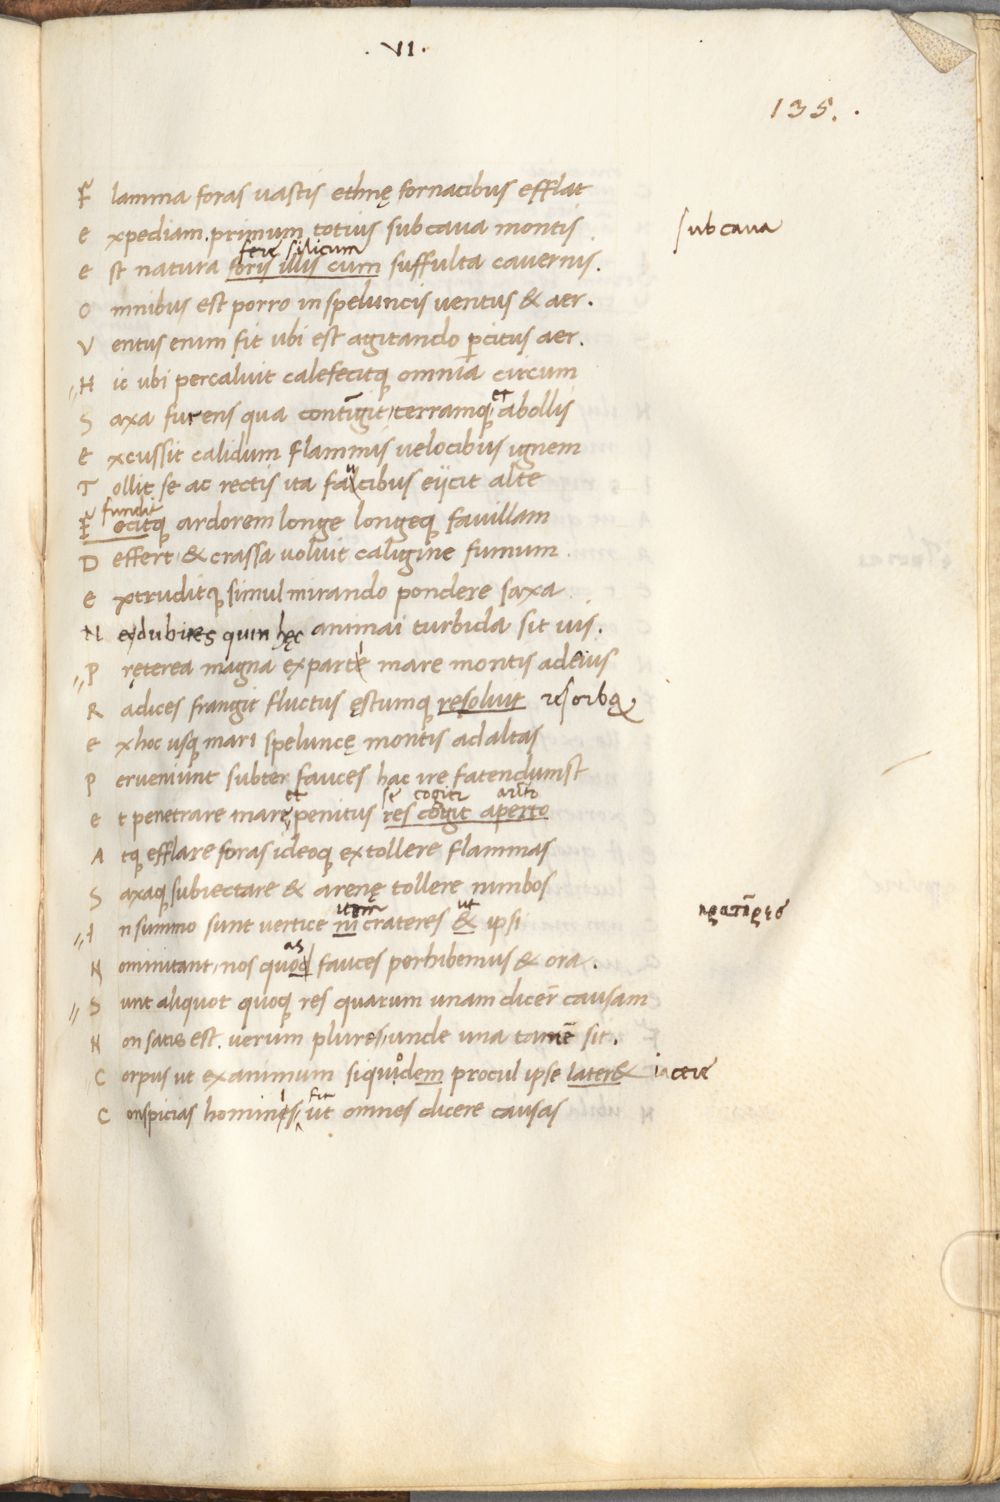 . VI .
135. .
F lamma foras vastis ethnę fornacibus efflat
E xpediam. primum totius subcava montis
subcava
fere silicum
E st natura foris illis cum suffulta cavernis.
O mnibus est porro in speluncis ventus & aer.
V entus enim fit ubi est agitando p̄citus aer.
H ic ubi percaluit calefecitq omnia circum
S axa furens qua contĩgit, terramq; et abollis
E xcussit calidum flammis velocibus ignem
T ollit se ac rectis ita faucibus eijcit alte
fundit
F ecitq ardorem longe longeq favillam
D effert & crassa volvit caligine fumum.
E xtruditq simul mirando pondere saxa.
N e dubites quin hęc animai turbida sit vis.
P ręterea magna ex parte mare montis ad eius
R adices frangit fluctus ęstumq resolvit resorbę
E x hoc usq mari speluncę montis ad altas
P erveniunt subter fauces hac ire fatendumst
et se cogit aperto
E t penetrare mare penitus res cogit aperto
A tq efflare foras ideoq extollere flammas
S axaq subiectare & arenę tollere nimbos
item ut
I n summo sunt vertice ni crateres & ipsi
κρατῆρες
as
N ominitant, nos quod fauces perhibemus & ora.
S unt aliquot quoq res quarum unam dicer̄ causam
N on satis est. verum plures, unde una tamē sit.
C orpus ut exanimum siquidem procul ipse latere iacere
fit
C onspicias hominis, ut omnes dicere causas